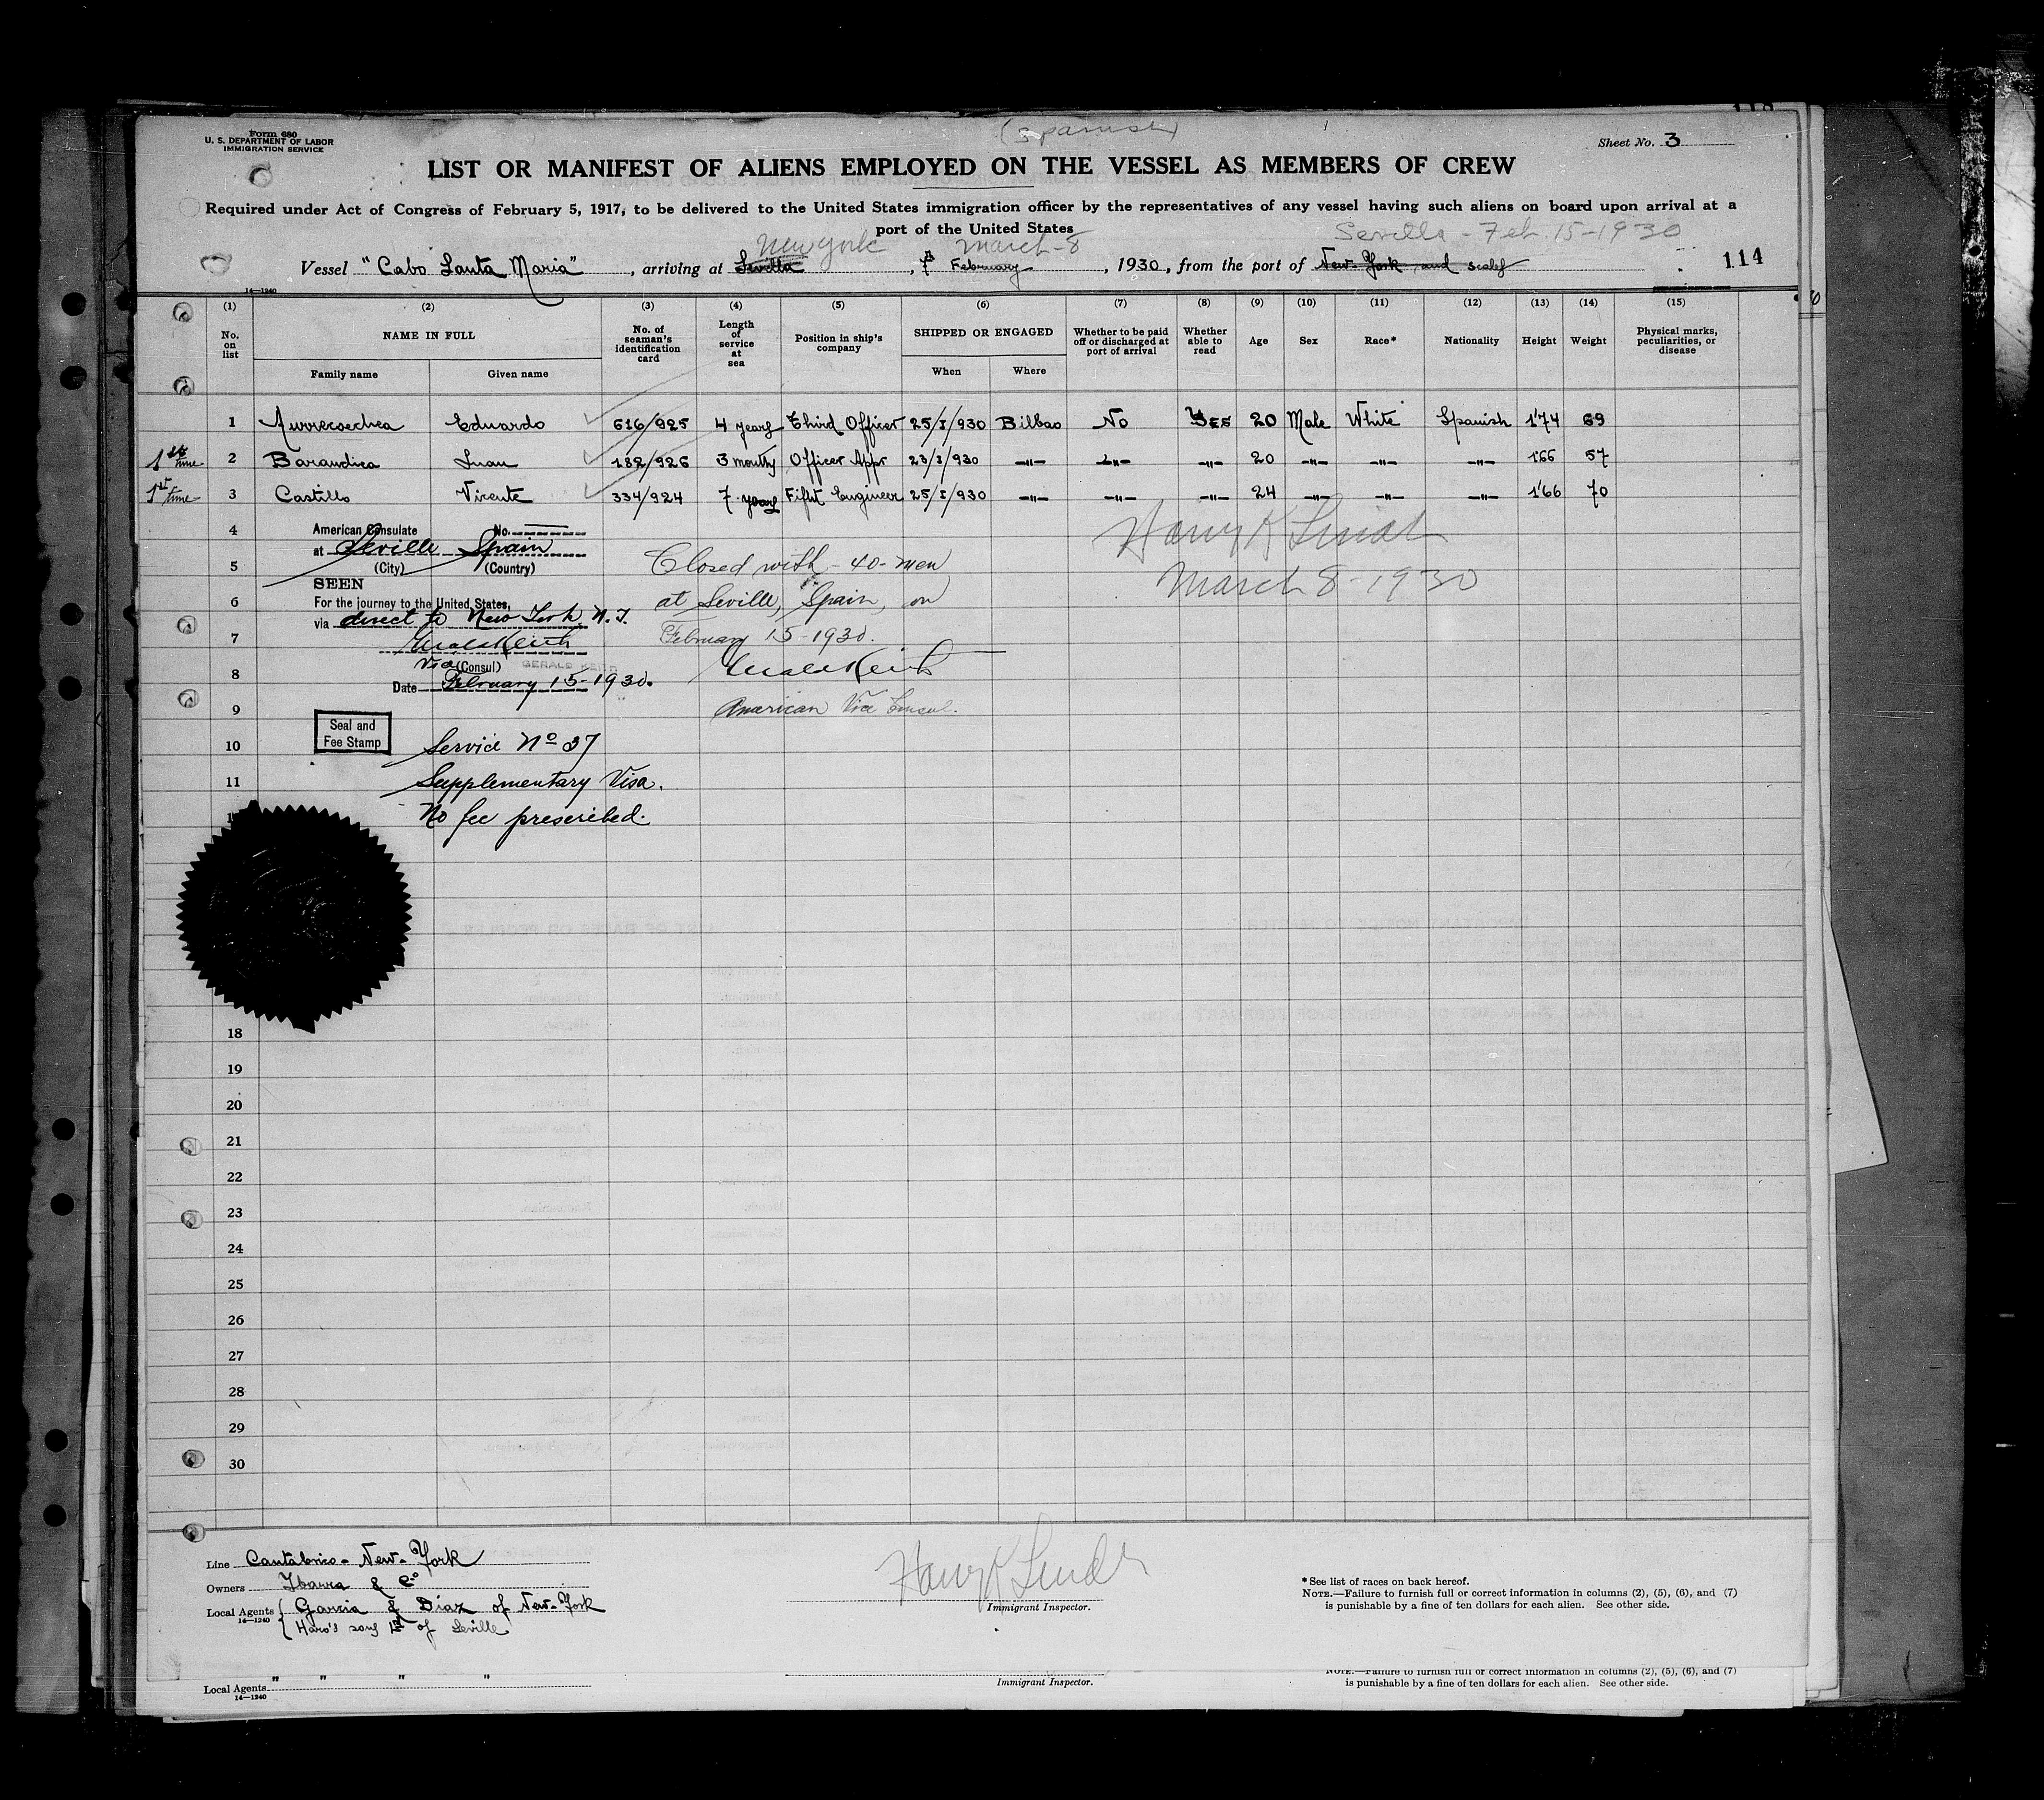 Form 680
U. S. DEPARTMENT OF LABOR
IMMIGRATION SERVICE
(Spanish)
Sheet No. 3
LIST OR MANIFEST OF ALIENS EMPLOYED ON THE VESSEL AS MEMBERS OF CREW
Required under Act of Congress of February 5, 1917, to be delivered to the United States immigration officer by the representatives of any vessel having such aliens on board upon arrival at a
port of the United States
New York March-8 Sevilla - Feb. 15-1930
Vessel "Cabo Santa Maria", arriving at Sevilla, February, 1930, from the port of New-York and scales 114
14—1240
(1) (2) (3) (4) (5) (6) (7) (8) (9) (10) (11) (12) (13) (14) (15)
No. on list NAME IN FULL Family name Given name No. of seaman's identification card Length of service at sea Position in ship's company SHIPPED OR ENGAGED When Where Whether to be paid off or discharged at port of arrival Whether able to read Age Sex Race* Nationality Height Weight Physical marks, peculiarities, or disease
1 Aurrecoechea Eduardo 616/925 4 years Third Officer 25/I/930 Bilbao No Yes 20 Male White Spanish 1'74 69
1st time 2 Barandica Juan 182/926 3 months Officer Appr 23/I/930 -"- -"- -"- 20 -"- -"- -"- 1'66 57
1st time 3 Castillo Vicente 334/924 7 years Fifht Engineer 25/I/930 -"- -"- -"- 24 -"- -"- -"- 1'66 70
4
5
6
7
8
9
10
11
American Consulate No.
at Seville Spain
(City) (Country)
SEEN
For the journey to the United States,
via direct to New York, N.Y.
Vice (Consul) GERALD KEITH
Date February 15-1930.
Seal and
Fee Stamp
Service Nº 37
Supplementary Visa.
No fee prescribed.
Closed with - 40 - men
at Seville, Spain, on
February 15-1930.
American Vice Consul.
Harry K
March 8-1930
18
19
20
21
22
23
24
25
26
27
28
29
30
Line Cantabrico - New-York
Owners Ybarra & Cº
Local Agents { Garcia & Diaz of New-York
14—1240 Haro's sons of Seville
Harry K
Immigrant Inspector.
*See list of races on back hereof.
NOTE.—Failure to furnish full or correct information in columns (2), (5), (6), and (7)
is punishable by a fine of ten dollars for each alien. See other side.
" " " "
Local Agents
14—1240
Immigrant Inspector.
NOTE.—Failure to furnish full or correct information in columns (2), (5), (6), and (7)
is punishable by a fine of ten dollars for each alien. See other side.